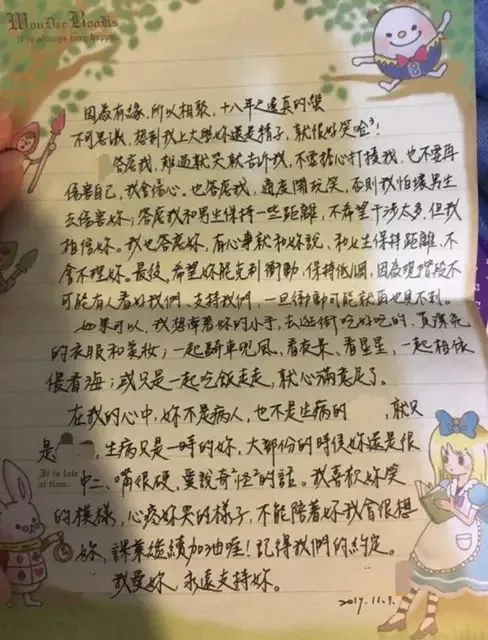 Wonder Books
it is always very happy.
因為有緣,所以相聚,十八年之遙真的蠻
不可思議,想到我上大學妳還是精子,就很好笑哈³!
答應我,難過就哭就告訴我,不需擔心打擾我,也不需再
傷害自己,我會傷心。也答應我,適度開玩笑,否則我怕壞男生
去傷害妳;答應我和男生保持一些距離,不希望干涉太多,但我
相信妳。我也答應妳,有心事就和妳說、和女生保持距離、不
會不理妳。最後,希望妳能克制衝動,保持低調,因為現階段不
可能有人看好我們、支持我們,一旦衝動可能就再也見不到。
如果可以,我想牽著妳的小手,去逛街吃好吃的、買漂亮
的衣服和美妝;一起騎車兜風、看夜景、看星星,一起相依
偎看海;或只是一起吃飯走走,就心滿意足了。
在我的心中,妳不是病人,也不是生病的 ,就只
是 ,生病只是一時的妳,大部份的時候妳還是很
It is late
at time.
中二、嘴很硬,愛說奇²怪²的話。我喜歡妳笑
的模樣,心疼妳哭的樣子,不能陪著妳我會很想
妳,課業繼續加油喔!記得我們的約定。
我愛妳,永遠支持妳。
2017.11.9.